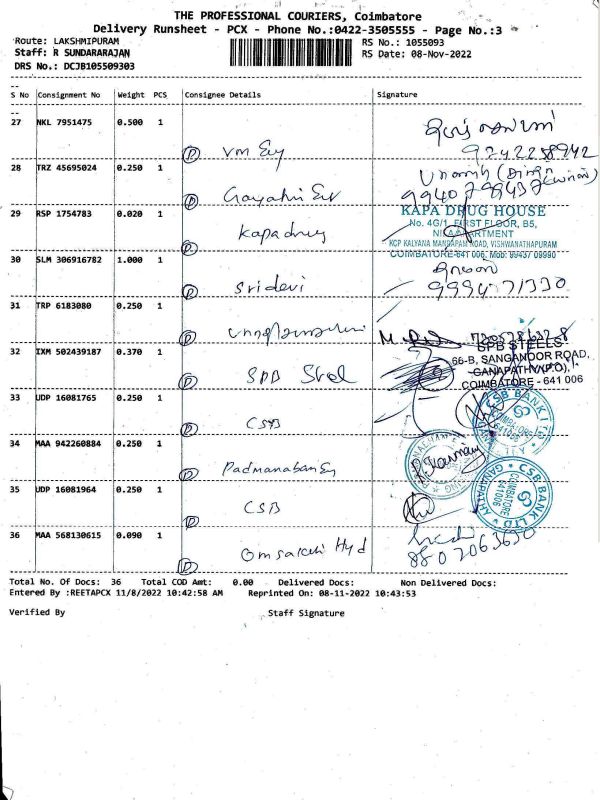 THE PROFESSIONAL COURIERS, Coimbatore
Delivery Runsheet - PCX - Phone No.:0422-3505555 - Page No.:3
Route: LAKSHMIPURAM RS No.: 1055093
Staff: R SUNDARARAJAN RS Date: 08-Nov-2022
DRS No.: DCJB105509303
S No Consignment No Weight PCS Consignee Details Signature
27 NKL 7951475 0.500 1
D vm Eng 9742258942
28 TRZ 45695024 0.250 1
D Gayathri
29 RSP 1754783 0.020 1 KAPA DRUG HOUSE
No. 4G/1, FIRST FLOOR, B5,
D Kapa drug
KCP KALYANA MANDAPAM ROAD, VISHWANATHAPURAM
COIMBATORE-641 006. Mob: 99437 09990
30 SLM 306916782 1.000 1
D Sridevi
31 TRP 6183080 0.250 1
D
32 IXM 502439187 0.370 1 SPB STEELS
66-B, SANGANOOR ROAD,
D SPB Steel GANAPATHY(P.O),
COIMBATORE - 641 006
33 UDP 16081765 0.250 1
D CSB CSB BANK LTD COIMBATORE 641006
34 MAA 942260884 0.250 1
D Padmanaban Eng
35 UDP 16081964 0.250 1 CSB BANK LTD GANAPATHY COIMBATORE 641006
D CSB
36 MAA 568130615 0.090 1
D Omsakthi Hyd 8807063630
Total No. Of Docs: 36 Total COD Amt: 0.00 Delivered Docs: Non Delivered Docs:
Entered By :REETAPCX 11/8/2022 10:42:58 AM Reprinted On: 08-11-2022 10:43:53
Verified By Staff Signature